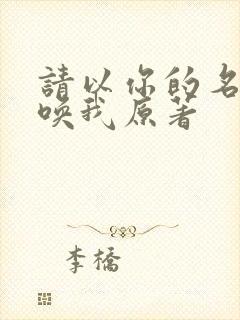 請以你的名
喚我原著
李橋